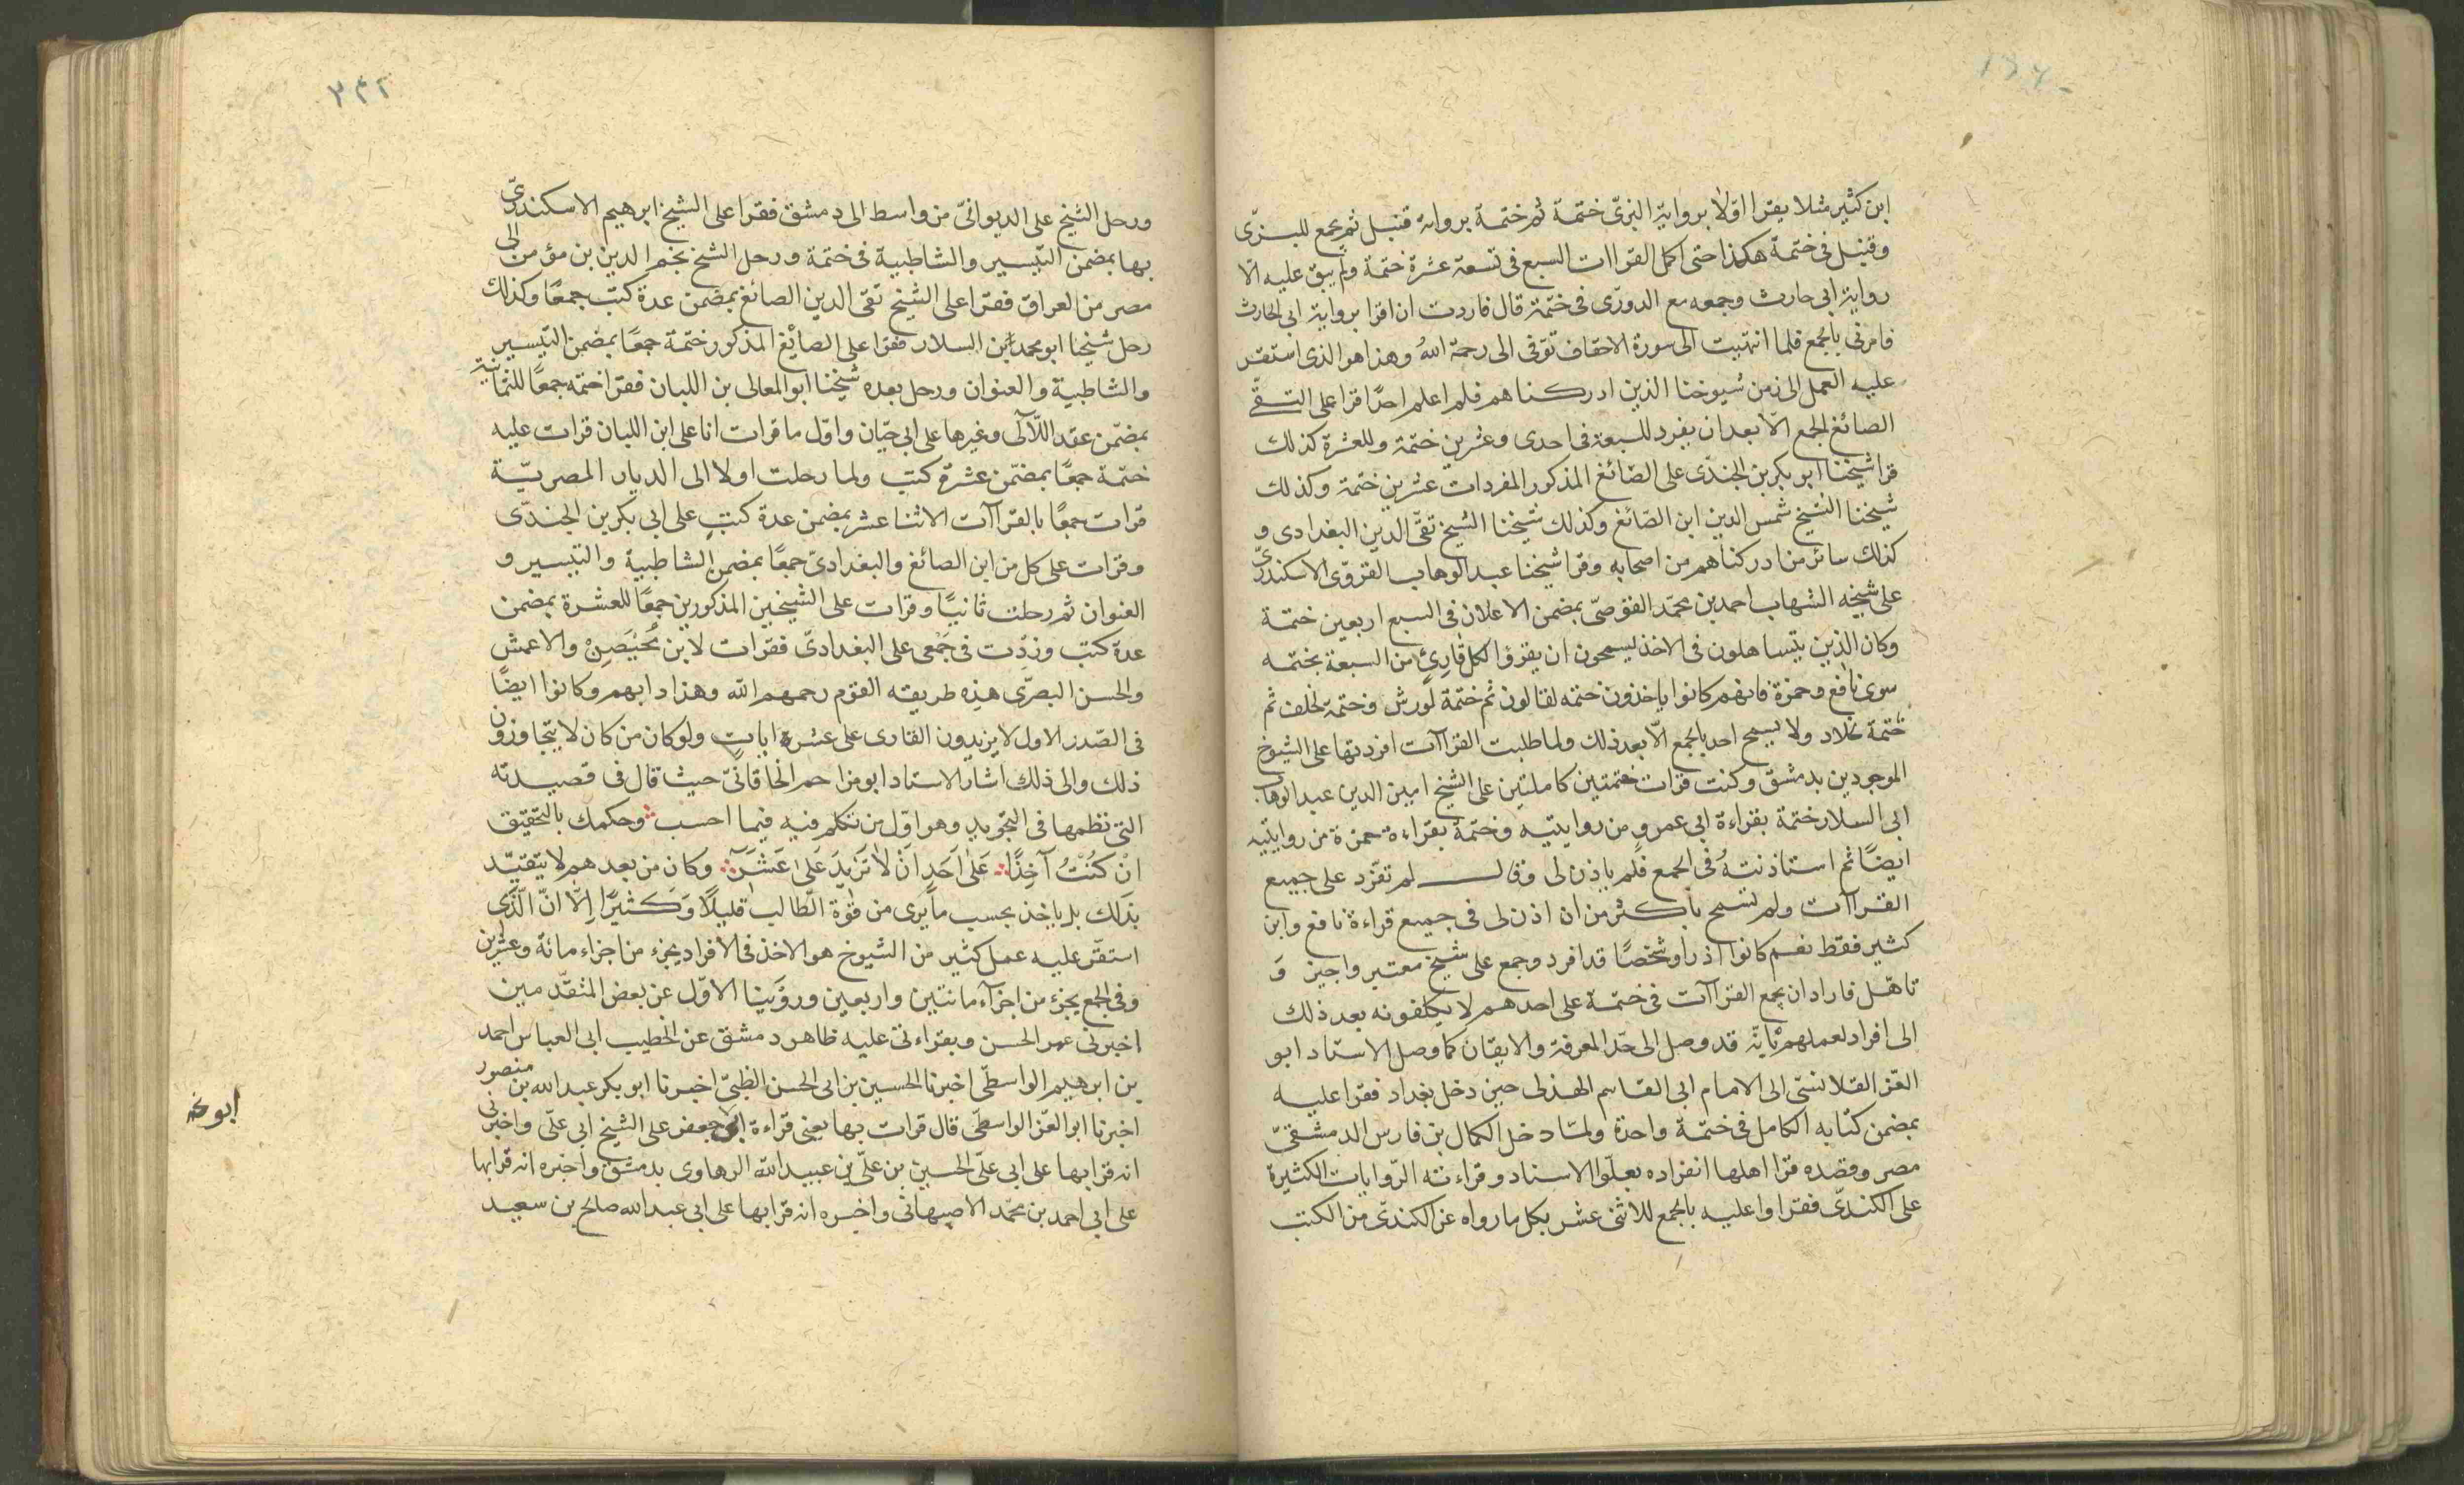 ابن كثير مثلا يقرا اولا برواية البزى ختمة ثم ختمة برواية قنبل ثم يجمع للبزى
وقنبل فى ختمة هكذا حتى اكمل القراات السبع فى تسعة عشرة ختمة ولم يبق عليه الا
رواية ابى حارث وجمعه مع الدورى فى ختمة قال فاردت ان اقرا برواية ابى الحارث
فامرنى بالجمع فلما انتهيت الى سورة الاحقاف توفى الى رحمة الله وهذا هو الذى استقر
عليه العمل الى زمن شيوخنا الذين ادركناهم فلم اعلم احدًا قرا على التقىّ
الصائغ الجمع الا بعد ان يفرد للسبعة فى احدى وعشرين ختمة وللعشرة كذلك
قرا شيخنا ابو بكر بن الجندى على الصائغ المذكور المفردات عشرين ختمة وكذلك
شيخنا الشيخ شمس الدين ابن الصائغ وكذلك شيخنا الشيخ تقى الدين البغدادى و
كذلك سائر من ادركناهم من اصحابه وقرا شيخنا عبد الوهاب القروى الاسكندرى
على شيخه الشهاب احمد بن محمد القوصى بمضمن الاعلان فى السبع اربعين ختمة
وكان الذين يتساهلون فى الاخذ ليسمحون ان يقرؤا لكل قارئ من السبعة بختمه
سوى نافع وحمزة فانهم كانوا ياخذون ختمه لقالون ثم ختمة لورش وختمة لخلف ثم
ختمة لخلاد ولا يسمح احد بالجمع الا بعد ذلك ولما طلبت القراآت افردتها على الشيوخ
الموجودين بدمشق وكنت قرات ختمتين كاملتين على الشيخ امين الدين عبد الوهاب
ابى السلار ختمة بقراءة ابى عمرو من روايتيه وختمة بقراءة حمزة من روايتيه
ايضًا ثم استاذنتهُ فى الجمع فلم ياذن لى وقال لم تفرد على جميع
القراآت ولم تسمح باكثر من ان اذن لى فى جميع قراءة نافع وابن
كثير فقط نعم كانوا اذ راو شخصًا قد افرد وجمع على شيخ معتبر واجيز وَ
تاهّل فاراد ان يجمع القراآت فى ختمة على احدهم لا يكلفونه بعد ذلك
الى افراد لعملهم بانّه قد وصل الى حدّ المعرفة والايقان كما وصل الاستاد ابو
العز القلانسى الى الامام ابى القاسم الهذلى حين دخل بغداد فقرا عليه
بمضمن كتابه الكامل فى ختمة واحدة ولمّا دخل الكمال بن فارس الدمشقىّ
مصر وقصده قرا اهلها انفراده بعلو الاسناد وقراءته الروايات الكثيرة
على الكندى فقراوا عليه بالجمع للاثنى عشر بكل ما رواه عن الكندى من الكتب
٢٤٢
ورحل الشيخ على الديوانىّ من واسط الى دمشق فقرا على الشيخ ابرهيم الاسكندرىّ
بها بمضمن التيسير والشاطبية فى ختمة ورحل الشيخ نجم الدين بن مؤمن الى
مصر من العراق فقرا على الشيخ تقى الدين الصائغ بمضمن عدة كتب جمعًا وكذلك
رحل شيخنا ابو محمد ابن السلار فقرا على الصائغ المذكور ختمة جمعًا بمضمن التيسير
والشاطبية والعنوان ورحل بعده شيخنا ابو المعالى بن اللبان فقرا ختمه جمعًا للثمانية
بمضمّن عقد اللآلى وغيرها على ابى حيّان واول ما قرات انا على ابن اللبان قرات عليه
ختمة جمعًا بمضمّن عشرة كتب ولما رحلت اولا الى الديار المصريّة
قرات جمعًا بالقراآت الاثنا عشر بمضمن عدة كتبٍ على ابى بكر بن الجندى
وقرات على كل من ابن الصائغ والبغدادىّ جمعًا بمضمن الشاطبية والتيسير و
العنوان ثم رحلت ثانيًا وقرات على الشيخين المذكورين جمعًا للعشرة بمضمن
عدة كتب وزدّت فى جَمْعى على البغدادىّ فقرات لابن مُحَيْصِنْ والاعمش
والحسن البصرّى هذه طريقه القوم رحمهم الله وهذا دابهم وكانوا ايضًا
فى الصّدر الاول لا يزيدون القارى على عشرة اياتٍ ولو كان من كان لا يتجاوزون
ذلك والى ذلك اشار الاستاد ابو مزاحم الخاقانىّ حيث قال فى قصيدته
التى نظمها فى التجويد وهو اوّل من تكلم فيه فيما احسب وحكمك بالتحقيق
انْ كُنْتُ آخِذًا عَلىٰ اَحَدٍ اَنْ لاٰ تَزيْدَ عَلىٰ عَشْرَ وكان من بعدهم لا يتقيّد
بذلك بل ياخذ بحسب ما يرى من قوٰة الطّالب قليلًا وَكثيرًا اِلّا انّ الّذى
استقّر عليه عمل كثير من الشيوخ هو الاخذ فى الافراد بجزء من اجزاء مائة وعشرين
وفى الجمع بجزء من اجزآء مائتين واربعين وروّينا الاوّل عن بعض المتقدّمين
اخبرنى عمر الحسن وبقراءتى عليه ظاهر دمشق عن الخطيب ابى العباس احمد
بن ابرهيم الواسطى اخبرنا الحسين بن ابى الحسن الطبىّ اخبرنا ابو بكر عبد الله بن منصور
اخبرنا ابو العز الواسطى قال قرات بها يعنى قراءة ابى جعفر على الشيخ ابى علّى واخبرنى
انه قرا بها على ابى علّى الحسين بن علّى بن عبيد الله الرهاوى بدمشق واخبره انه قرا بها
على ابى احمد بن محمّد الاصبهانى واخبره انه قرا بها على ابى عبد الله صالح بن سعيد
ابو